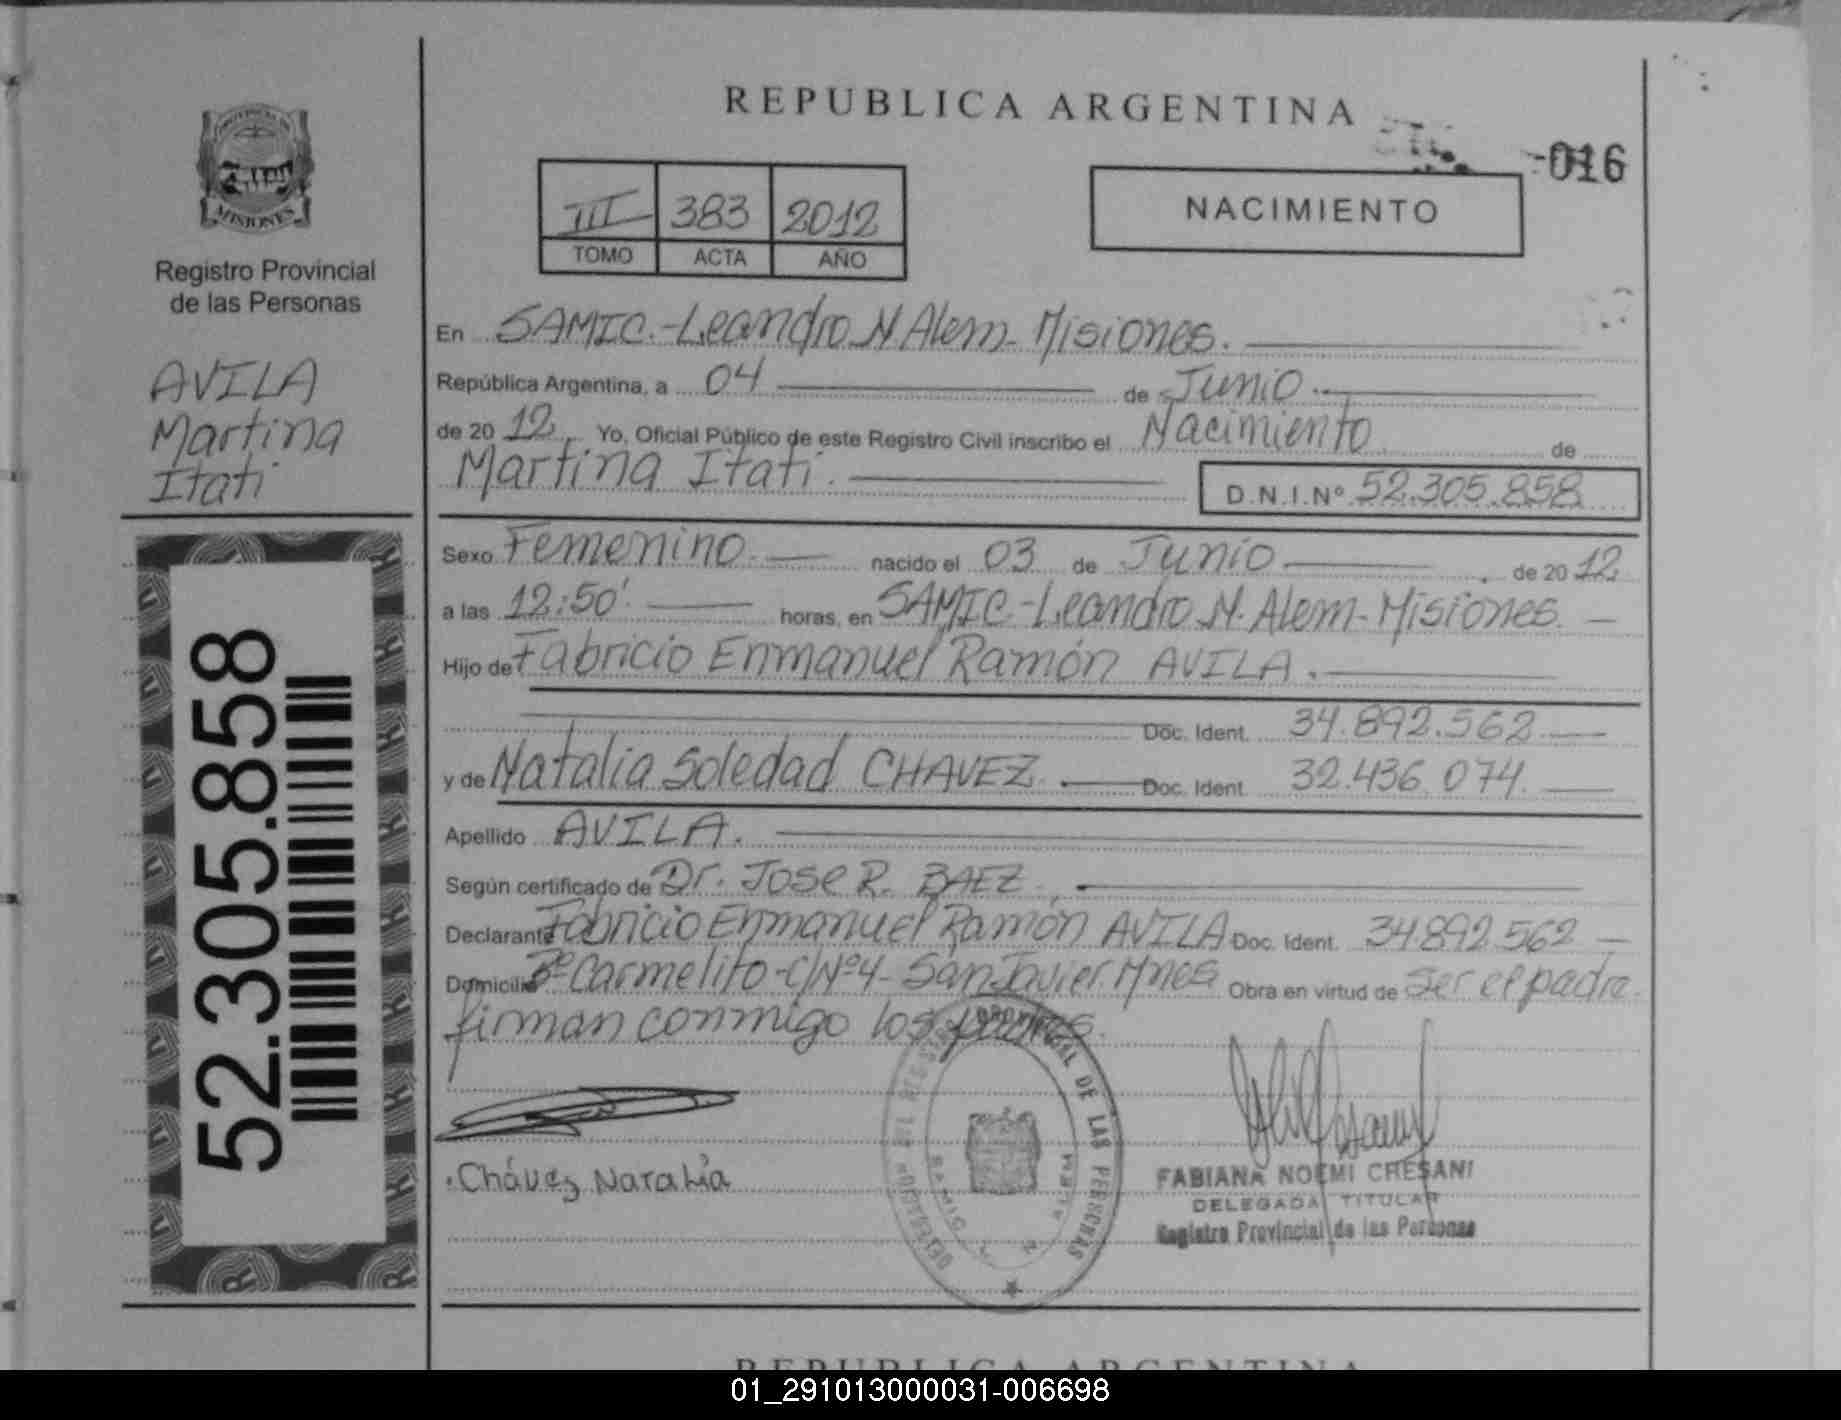 REPUBLICA ARGENTINA
-016
PROVINCIA DE
MISIONES
Registro Provincial
de las Personas
AVILA
Martina
Itati
52.305.858
III 383 2012
TOMO ACTA AÑO
NACIMIENTO
En SAMIC.-Leandro N Alem- Misiones.
República Argentina, a 04 de Junio.
de 20 12. Yo, Oficial Público de este Registro Civil inscribo el Nacimiento de
Martina Itati. D.N.I.Nº 52.305.858
Sexo Femenino. nacido el 03 de Junio de 20 12
a las 12:50' horas, en SAMIC.-Leandro N. Alem- Misiones.
Hijo de Fabricio Enmanuel Ramón AVILA.
Doc. Ident. 34.892.562
y de Natalia Soledad CHAVEZ Doc. Ident. 32.436.074.
Apellido AVILA.
Según certificado de Dr. Jose R. BAEZ.
Declarante Fabricio Enmanuel Ramón AVILA Doc. Ident. 34892.562
Domicilio Bº Carmelito-C/Nº4- San Javier. Mnes Obra en virtud de ser el padre.
firman conmigo los padres.
Cháves Naralia
PROVINCIAL DE LAS PERSONAS
SAMIC
ALEM
FABIANA NOEMI CRESANI
DELEGADA TITULAR
Registro Provincial de las Personas
REPUBLICA ARGENTINA
01_291013000031-006698